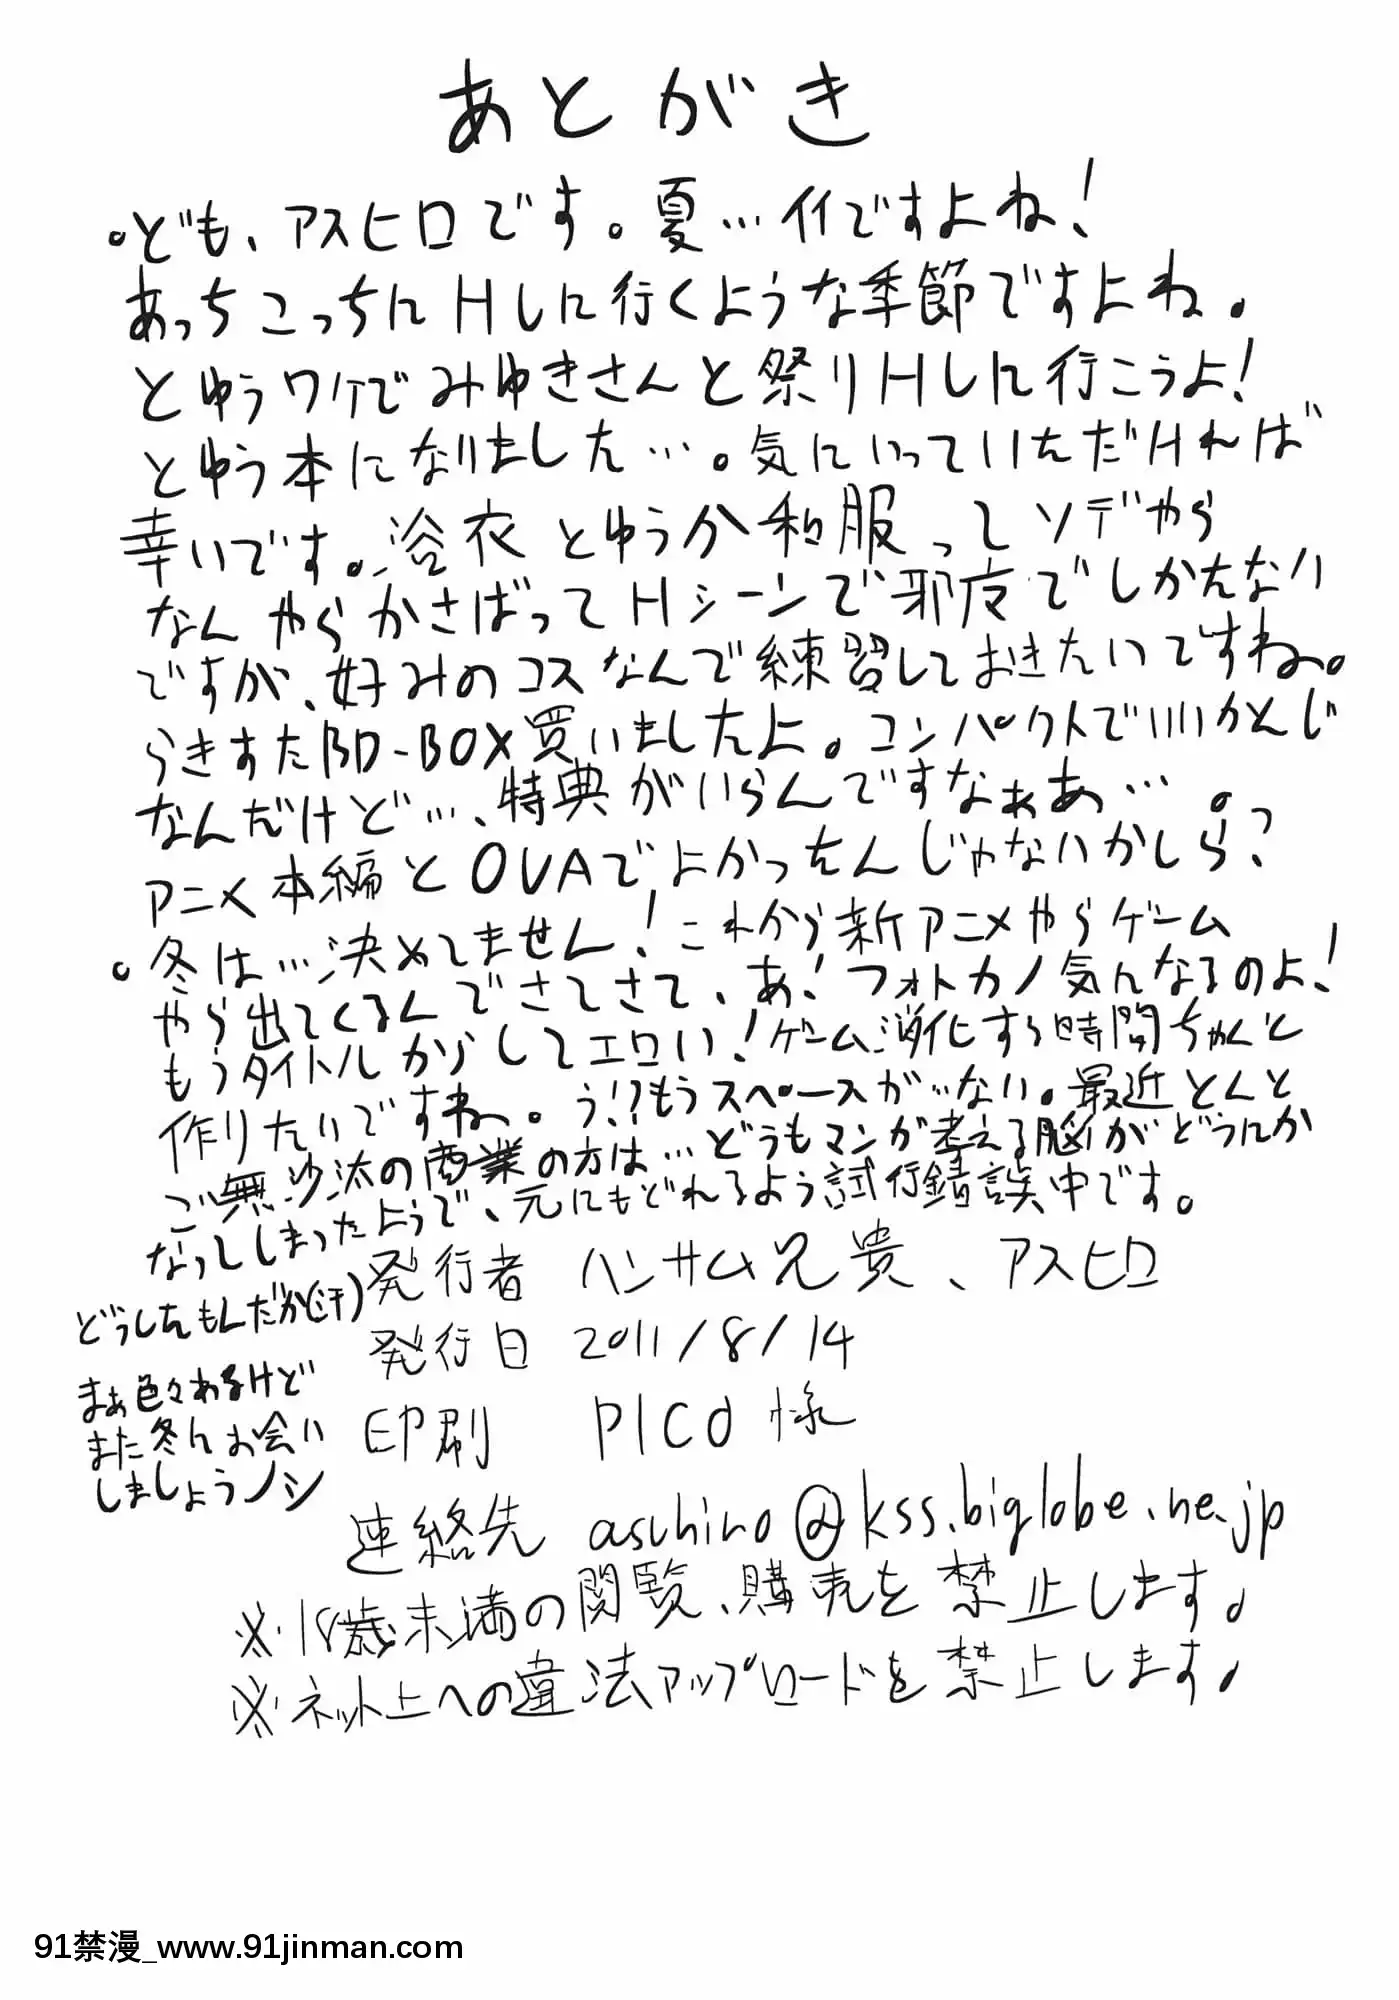 あとがき
。ども、アスヒロです。夏…イイですよね!
あっちこっちにHしに行くような季節ですよね。
とゆうワケでみゆきさんと祭りHしに行こうよ!
とゆう本になりました…。気にいっていただければ
幸いです。浴衣とゆうか和服ってソデやら
なんやらかさばってHシーンで邪魔でしかたない
ですが、好みのコスなんで練習しておきたいですね。
らきすたBD-BOX買いましたよ。コンパクトでいいかんじ
なんだけど…、特典がいらんですなぁあ…。
アニメ本編とOVAでよかったんじゃないかしら?
。冬は…決めてません!これから新アニメやらゲーム
やら出てくるんでさてさて、あ!フォトカノ気になるのよ!
もうタイトルからしてエロい!ゲーム消化する時間ちゃんと
作りたいですねー。う!?もうスペースが…ない。最近とんと
ご無沙汰の商業の方は…どうもマンガ考える脳がどうにか
なってしまったようで、元にもどれるよう試行錯誤中です。
どうしたもんだか(汗)
まぁ色々あるけど
また冬にお会い
しましょうノシ
発行者 ハンサム兄貴、アスヒロ
発行日 2011/8/14
印刷 PICO様
連絡先 asuhiro@kss.biglobe.ne.jp
※18歳未満の閲覧、購売を禁止します。
※ネット上への違法アップロードを禁止します。
91禁漫_www.91jinman.com